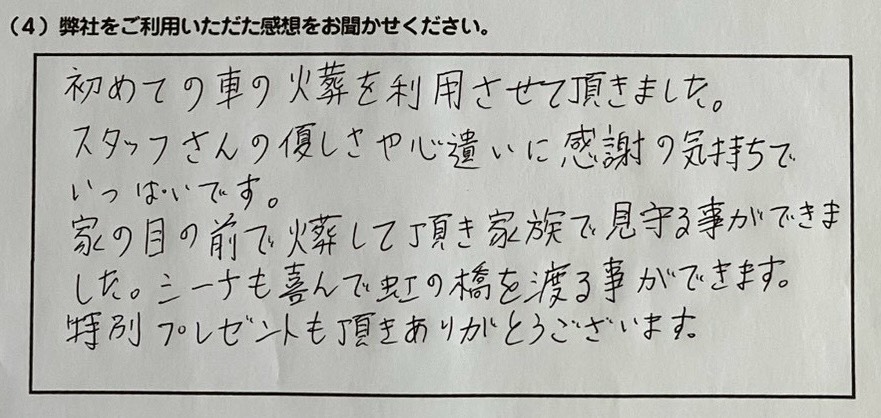 （4）弊社をご利用いただた感想をお聞かせください。
初めての車の火葬を利用させて頂きました。
スタッフさんの優しさや心遣いに感謝の気持ちで
いっぱいです。
家の目の前で火葬して頂き家族で見守る事ができま
した。シーナも喜んで虹の橋を渡る事ができます。
特別プレゼントも頂きありがとうございます。